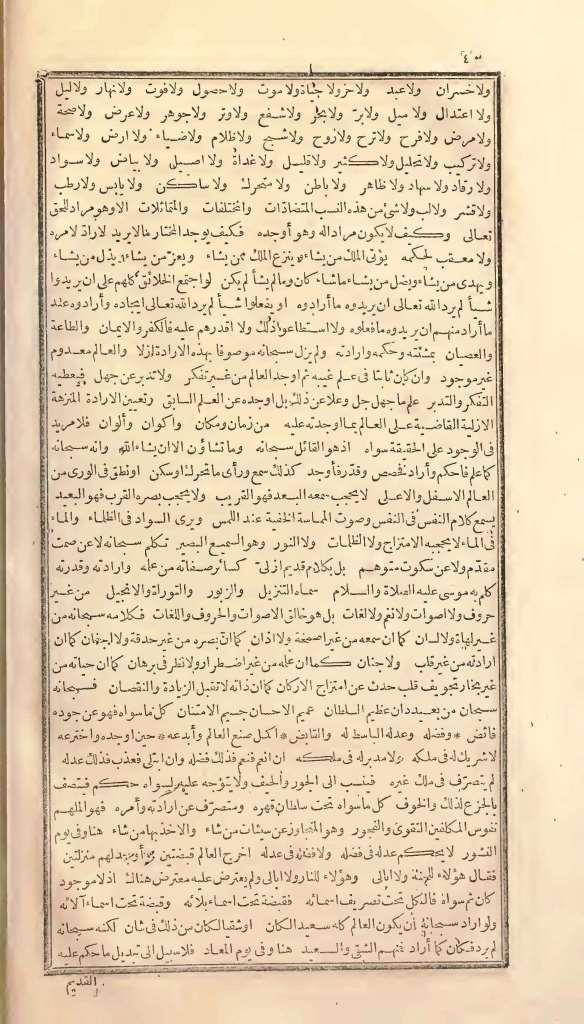 ٤٠
ولا خسران ولا عبد ولا حر ولا حياة ولا موت ولا حصول ولا فوت ولا نهار ولا ليل
ولا اعتدال ولا ميل ولا بر ولا بحر ولا شفع ولا وتر ولا جوهر ولا عرض ولا صحة
ولا مرض ولا فرح ولا ترح ولا روح ولا شبح ولا ظلام ولا ضياء ولا ارض ولا سماء
ولا تركيب ولا تحليل ولا كثير ولا قليل ولا غداة ولا اصيل ولا بياض ولا سواد
ولا رقاد ولا سهاد ولا ظاهر ولا باطن ولا متحرك ولا ساكن ولا يابس ولا رطب
ولا قشر ولا لب ولا شئ من هذه النسب المتضادات والمختلفات والمتماثلات الا وهو مراد للحق
تعالى وكيف لا يكون مراد اله وهو أوجده فكيف يوجد المختار مالا يريد لا راد لامره
ولا معقب لحكمه يؤتى الملك من يشاء وينزع الملك ممن يشاء ويعز من يشاء ويذل من يشاء
ويهدى من يشاء ويضل من يشاء ما شاء كان وما لم يشأ لم يكن لو اجتمع الخلائق كلهم على ان يريدوا
شيأ لم يرد الله تعالى ان يريدوه ما أرادوه او يفعلوا شيأ لم يرد الله تعالى ايجاده وأرادوه عند
ما أراد منهم ان يريدوه ما فعلوه ولا استطاعوا ذلك ولا اقدرهم عليه فالكفر والايمان والطاعة
والعصيان بمشئته وحكمه وارادته ولم يزل سبحانه موصوفا بهذه الارادة ازلا والعالم معدوم
غير موجود وان كان ثابتا فى علم غيبه ثم اوجد العالم من غير تفكر ولا تدبر عن جهل فيعطيه
التفكر والتدبر علم ما جهل جل وعلا عن ذلك بل اوجده عن العلم السابق وتعيين الارادة المنزهة
الازلية القاضية على العالم بما اوجدته عليه من زمان ومكان واكوان وألوان فلا مريد
فى الوجود على الحقيقة سواه اذ هو القائل سبحانه وما تشاؤن الا ان يشاء الله وانه سبحانه
كما علم فاحكم وأراد فخصص وقدر فأوجد كذلك سمع ورأى ما تحرك او سكن او نطق فى الورى من
العالم الاسفل والاعلى لا يحجب سمعه البعد فهو القريب ولا يحجب بصره القرب فهو البعيد
يسمع كلام النفس فى النفس وصوت المماسة الخفية عند اللمس ويرى السواد فى الظلماء والماء
فى الماء لا يحجبه الامتزاج ولا الظلمات ولا النور وهو السميع البصير تكلم سبحانه لا عن صمت
مقدم ولا عن سكوت متوهم بل بكلام قديم ازلى كسائر صفاته من علمه وارادته وقدرته
كلم به موسى عليه الصلاة والسلام سماه التنزيل والزبور والتوراة والانجيل من غير
حروف ولا اصوات ولا نغم ولا لغات بل هو خالق الاصوات والحروف واللغات فكلامه سبحانه من
غير لهاة ولا لسان كما ان سمعه من غير اصمخة ولا اذان كما ان بصره من غير حدقة ولا اجفان كما ان
ارادته من غير قلب ولا جنان كما ان علمه من غير اضطرار ولا نظر فى برهان كما ان حياته من
غير بخار تجويف قلب حدث عن امتزاج الاركان كما ان ذاته لا تقبل الزيادة والنقصان فسبحانه
سبحان من بعيد دان عظيم السلطان عميم الاحسان جسيم الامتنان كل ما سواه فهو عن جوده
فائض * وفضله وعدله الباسط له والقابض * اكمل صنع العالم وأبدعه * حين اوجده واخترعه
لا شريك له فى ملكه ولا مدبر له فى ملكه ان انعم فنعم فذلك فضله وان ابتلى فعذب فذلك عدله
لم يتصرف فى ملك غيره فينسب الى الجور والحيف ولا يتوجه عليه لسواه حكم فيتصف
بالجزع لذلك والخوف كل ما سواه تحت سلطان قهره ومتصرف عن ارادته وأمره فهو الملهم
نفوس المكلفين التقوى والفجور وهو المتجاوز عن سيئات من شاء والاخذ بها من شاء هنا وفى يوم
النشور لا يحكم عدله فى فضله ولا فضله فى عدله اخرج العالم قبضتين وأوجد لهم منزلتين
فقال هؤلاء للجنة ولا ابالى وهؤلاء للنار ولا ابالى ولم يعترض عليه معترض هناك اذ لا موجود
كان ثم سواه فالكل تحت تصريف اسمائه فقبضة تحت اسماء بلائه وقبضة تحت اسماء آلائه
ولو اراد سبحانه أن يكون العالم كله سعيدا لكان او شقيا لكان من ذلك فى شان لكنه سبحانه
لم يرد فكان كما أراد فمنهم الشقى والسعيد هنا وفى يوم المعاد فلا سبيل الى تبديل ما حكم عليه
القديم